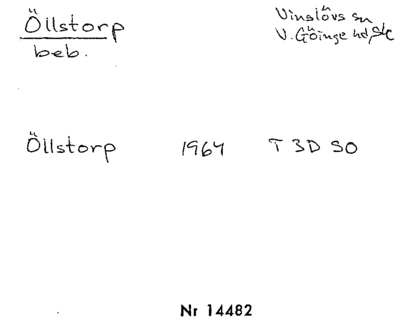 Öllstorp
beb.
Vinslövs sn
V. Göinge hd, Sk
Öllstorp 1964 T 3D SO
Nr 14482